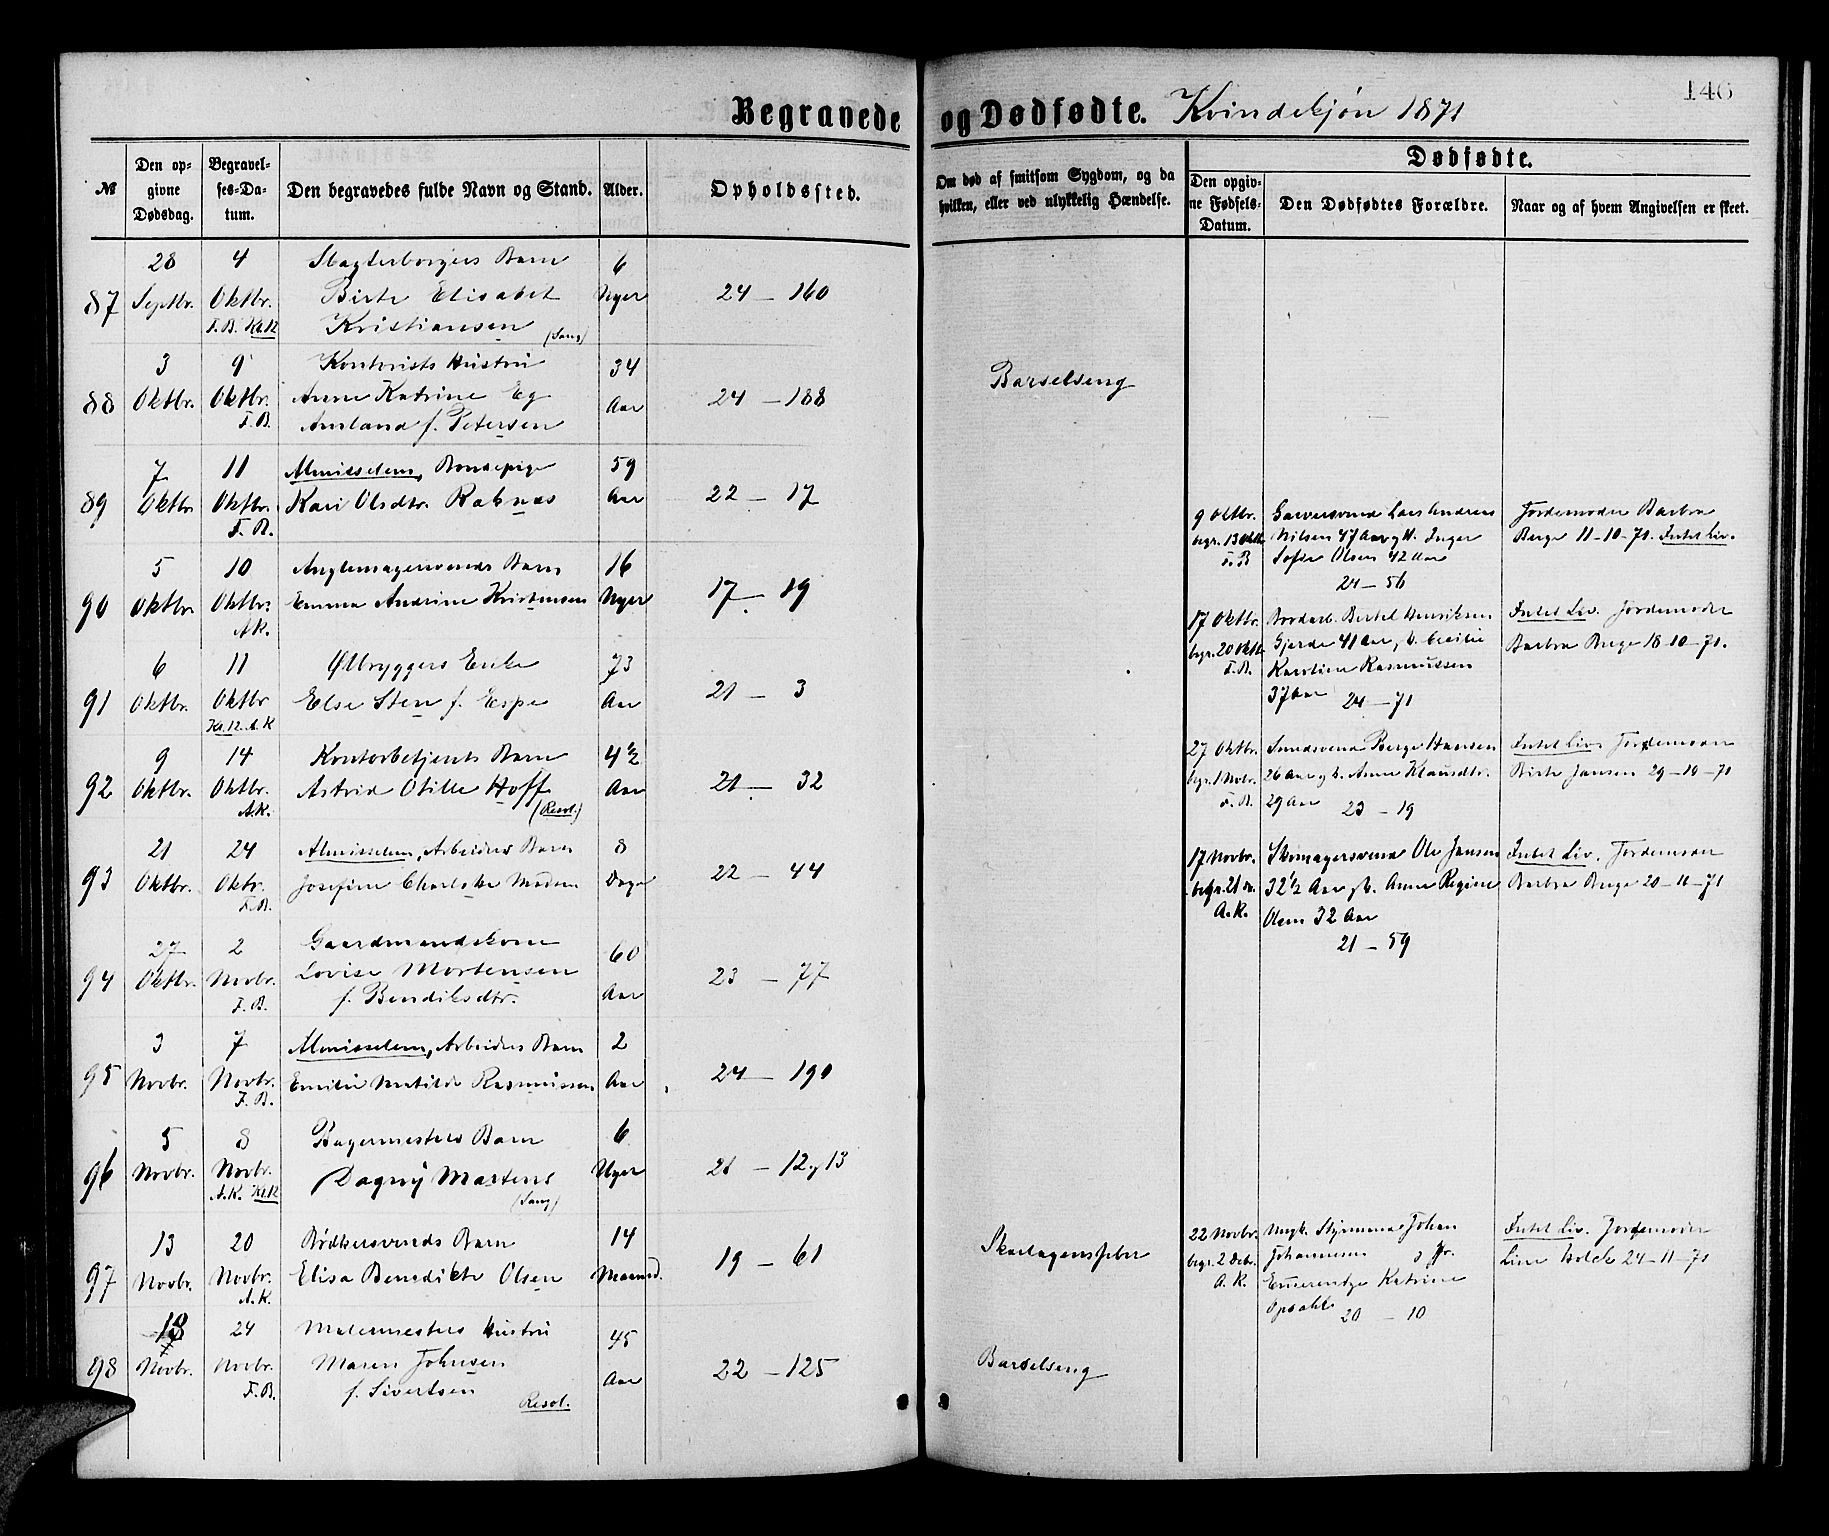 146
Begravede og Dødfødte. Kvindekjøn 1871
№
Den op-
givne
Dødsdag.
Begravel-
ses-Da-
tum.
Den begravedes fulde Navn og Stand.
Alder.
Opholdssted.
Om død af smitsom Sygdom, og da
hvilken, eller ved ulykkelig Hændelse.
Dødfødte.
Den opgiv-
ne Fødsels-
Datum.
Den Dødfødtes Forældre.
Naar og af hvem Angivelsen er skeet.
28 4 Slagterborgers Barn 6
87 Septbr. Oktbr. Birte Elisabet Uger 24 - 160
F.B. Kl.12 Kristiansen (Sang)
3 9 Kontorists Hustru 34
88 Oktbr. Oktbr. Anne Katrine Eg Aar 24 - 188 Barselseng
F.B. Amland f. Petersen
7 11 Almisselem, Bondepige 59
89 Oktbr. Oktbr. Kari Olsdtr. Aar 22 - 17
F.B.
5 10 Barn 16
90 Oktbr. Oktbr. Emma Andrine Kristensen Uger 17 - 19
A.K.
6 11 Ølbryggers Enke 73
91 Oktbr. Oktbr Else Sten f. Espe Aar 21 - 3
Kl.12. A.K
9 14 Kontorbetjents Barn 4½
92 Oktbr. Oktbr. Astrid Otilie Hoff Aar 21 - 32
A.K. (Resol.)
21 24 Almisselem, Arbeiders Barn 8
93 Oktbr. Oktbr. Josefine Charlotte Madsen Dage 22 - 44
F.B.
27 2 Gaardmandskone 60
94 Oktbr. Novbr. Lovise Mortensen Aar 23 - 77
F.B. f. Bendiksdtr.
3 7 Almisselem, Arbeiders Barn 2
95 Novbr. Novbr. Emilie Matilde Rasmussen Aar 24 - 190
F.B.
5 8 Bagermesters Barn 6
96 Novbr. Novbr. Dagny Martens Uger 21 - 12 & 13
A.K. Kl.12 (Sang)
13 20 Bødkersvends Barn 14
97 Novbr. Novbr. Elisa Benedikte Olsen Maaned. 19 - 61 Skarlagensfeber
A.K.
18 24 Malermesters Hustru 45
98 Novbr. Novbr. Maren Johnsen Aar 22 - 125 Barselseng
F.B. f. Sivertsen
Resol.
9 Oktbr. Garversvend Lars Andreas Jordemoder Barbra
begr. 13 Oktb. Nilsen 47 Aar og H. Inger Berge 11-10-71. Intet Liv.
F.B Sofie Olsen 42 Aar
24 - 56
17 Oktbr. Bertel Henriksen Intet Liv. Jordemoder
begr. 20 Oktb. Gjerde 41 Aar, H. Cecilie Barbra Berge 18-10-71.
F.B. Karoline Rasmussen
37 Aar 24 - 71
27 Oktbr. Smedsvend Berge Hansen Intet Liv. Jordemoder
begr. 1 Novbr. 26 Aar og H. Anne Klausdtr. Birte Jansen 29-10-71
F.B. 29 Aar 23 - 19
17 Novbr. Skomagersvend Ole Jansen Intet Liv. Jordemoder
begr. 21 ds. 32½ Aar og H. Anne Regine Barbra Berge 20-11-71
A.K. Olsen 32 Aar
21 - 59
22 Novbr. Ungk. Styrmand Johan Intet Liv. Jordemoder
begr. 2 Debr. Johannesen Line Holck 24-11-71
A.K. Emerentze Katrine
Opsahl 20 - 10